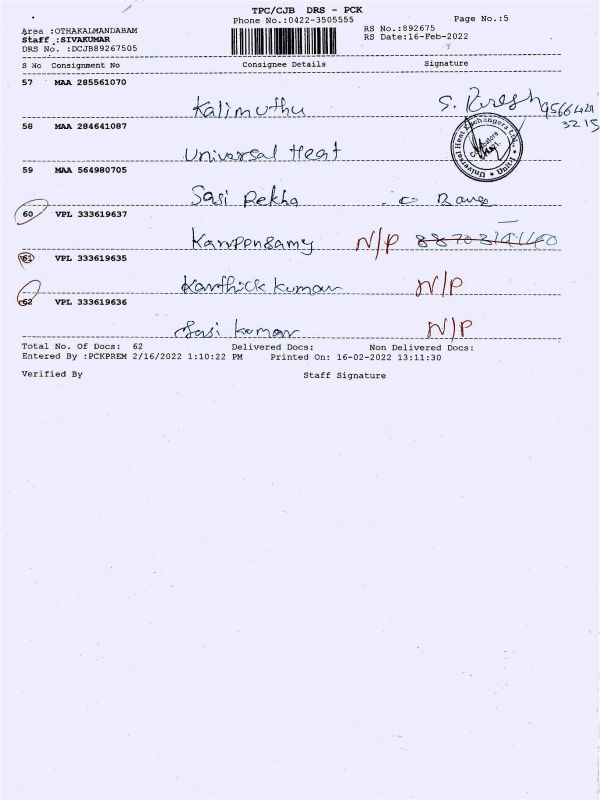 TPC/CJB DRS - PCK
Phone No.:0422-3505555 Page No.:5
Area :OTHAKALMANDABAM RS No.:892675
Staff :SIVAKUMAR RS Date:16-Feb-2022
DRS No. :DCJB89267505
S No Consignment No Consignee Details Signature
57 MAA 285561070
Kalimuthu S. Suresh 9566424
3215
58 MAA 284641087
Universal Heat
Universal Heat Exchangers Ltd.,
59 MAA 564980705
Sasi Rekha
60 VPL 333619637
Karppusamy N/P
61 VPL 333619635
Karthick kumar N/P
62 VPL 333619636
Sasi kumar N/P
Total No. Of Docs: 62 Delivered Docs: Non Delivered Docs:
Entered By :PCKPREM 2/16/2022 1:10:22 PM Printed On: 16-02-2022 13:11:30
Verified By Staff Signature